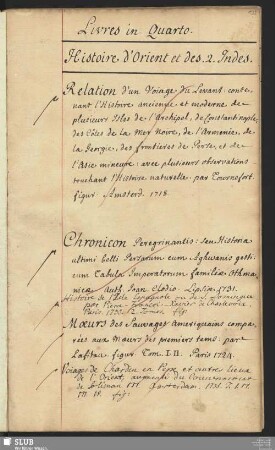 Livres in Quarto.
Histoire d'Orient et des 2. Indes.
Relation d'un Voiage du Levant conte-
nant l'Histoire ancienne et moderne de
plusieurs Isles de l'Archipel, de Constantinople,
des Côtes de la Mer Noire, de l'Armenie, de
la Georgie, des frontieres de Perse, et de
l'Asie mineure: avec plusieurs observations
touchant l'Histoire naturelle. par Tournefort.
figur. Amsterd. 1718.
Chronicon Peregrinantis: seu Historia
ultimi belli Persarum cum Aghwanis gesti:
cum Tabula Imperatorum familiæ Othma-
nicæ Auth. Joan. Clodio. Lipsiæ. 1731.
Histoire de l'Isle Espagnole ou de S. Domingue
par Pierre François Xavier de Charlevoix
Paris. 1730. 2. Tomes fig.
Mœurs des Sauvages Ameriquains compa-
rées aux Mœurs des premiers tems: par
Lafitau figur. Tom. I. II. Paris 1724.
Voiages de Chardin en Perse, et autres lieux
de l'Orient, augmenté du Couronnement
de Soliman III. Amsterdam. T. I. II.
III. IV. fig.
SLUB
Wir führen Wissen.